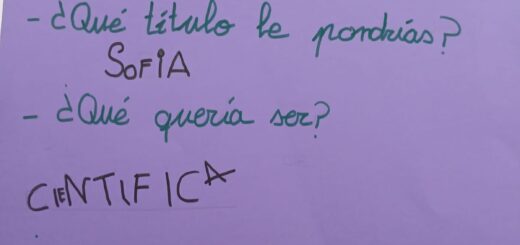 - ¿Qué título le pondrías?
SOFIA
- ¿Qué quería ser?
CIENTIFICA